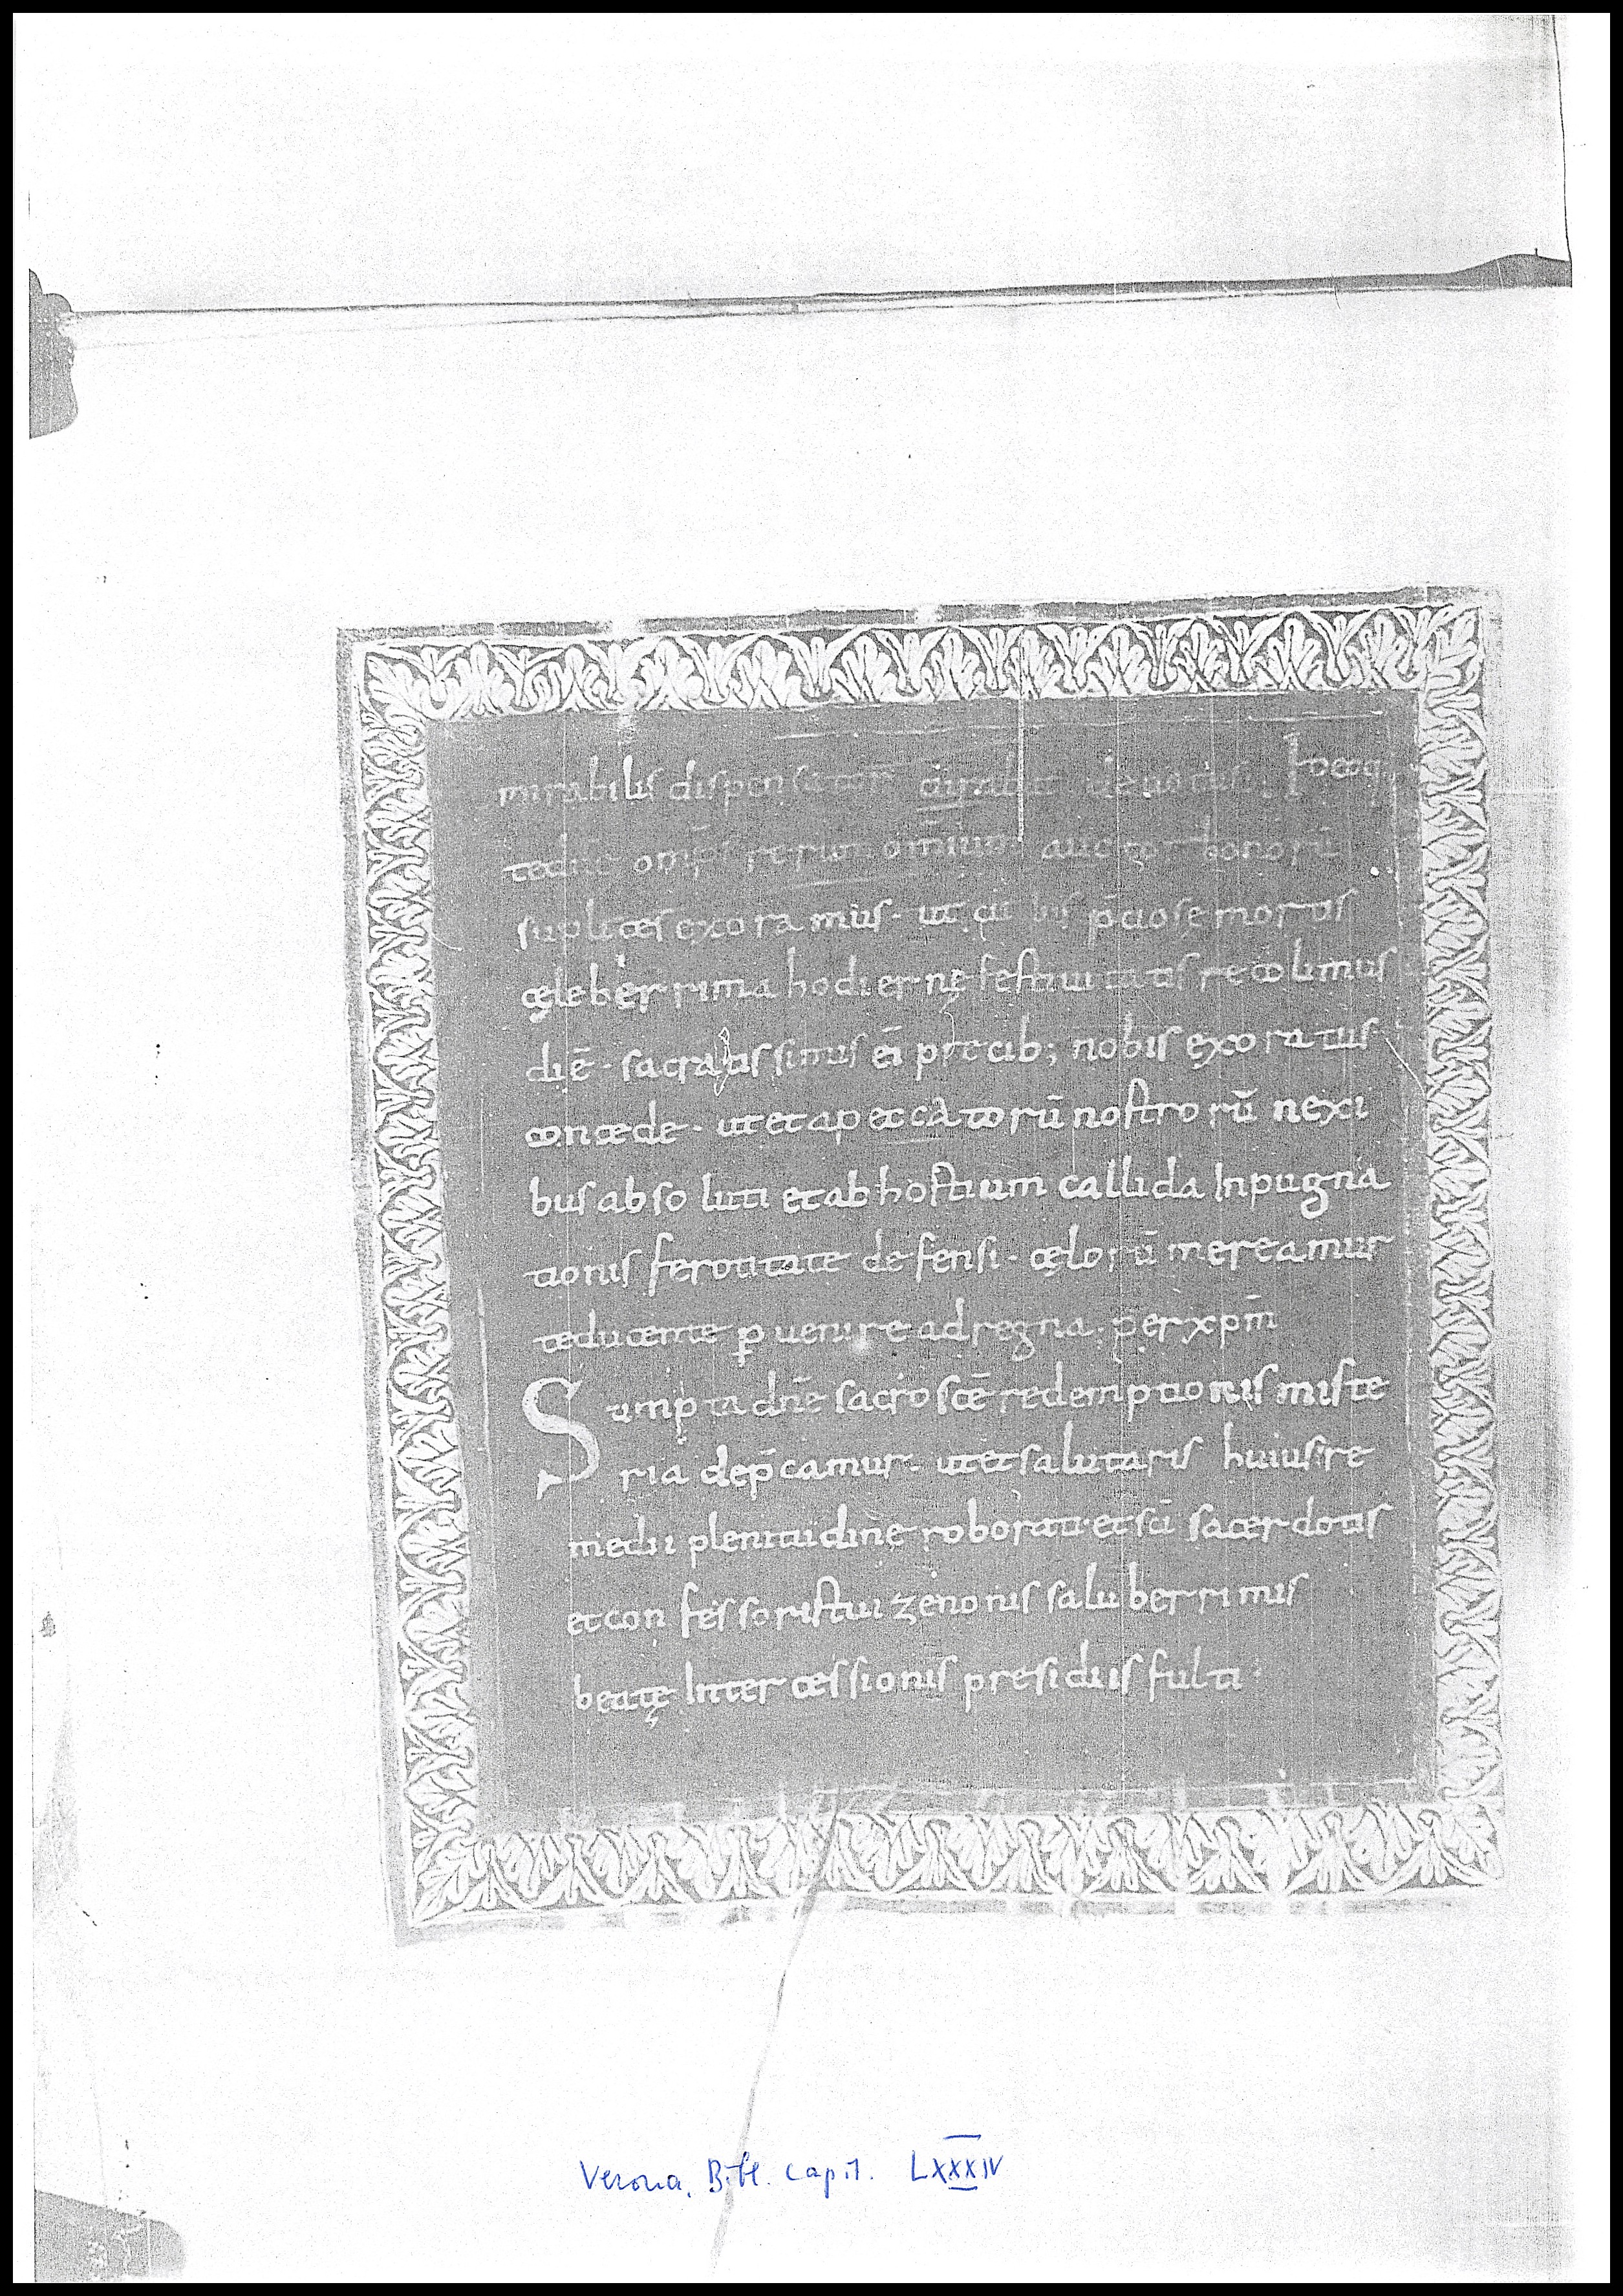 mirabilis dispensatorē
tedñe omps rerum omium auctor bonorū
suplices exoramus · ut cuius p̄ciose mortis
celeberrima hodiernę festiuitatis recolimus
diē · sacratissimis ei precib; nobis exoratus
concede · ut et a peccatorū nostrorū nexi
bus absoluti et ab hostium callida Inpugna
tionis ferotitate defensi · cęlorū mereamur
te ducente ꝑuenire ad regna · per xpm̄
Sumpta dñe sacroscē redemptionis miste
ria dep̄camur · ut et salutaris huius re
medii plenitudine roborati · et scī sacerdotis
et confessoris tui zenonis saluberrimis
beatę Intercessionis presidiis fulti
Verona, Bibl. Capit. LXXXIV